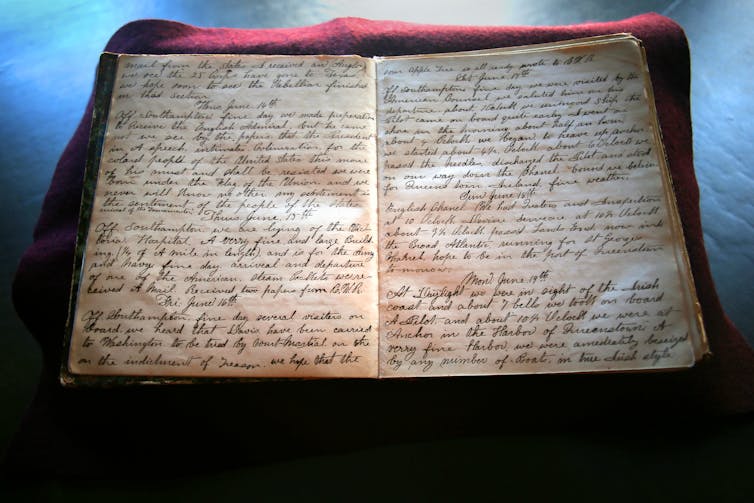 mail from the States & received an Anglo,
we see the 25 Corps have gone to Texas
we hope soon to see the Rebellion finished
in that section.
Thurs June 14th
Off Southampton fine day we made preparation
to receive the English Admiral, but he came
not we see by the papers that the President
in A speech, intimates Colonization, for the
colard people of the United States this move
of his must and shall be resisted we were
born under the Flag of the Union, and we
never will know no other my sentiment is
the sentiment of the people of the States
Thurs June 15th
Off Southampton we are lying of the Vic-
toria Hospital. A verry fine and large Build
ing, (¼ of A mile in length) and is for the Army
and Navy fine day, arrival and departure
of one of the American Steam Packets we re-
ceived A Mail Received two papers from B.W.R.
Fri. June 16th
Off Southampton, fine day several visitors on
board, we heard that Davis have been carried
to Washington to be tried by Court Martial on the
on the indictment of Treason. we hope that the
sour Apple Tree is all ready wrote to B.W.R.
Sat June 17th
Off Southampton fine day we were visited by the
American Counsel & Saluted him on his
departure about Oclock we unmoord Ship the
Pilot came on board quite early and went on
shore in the morning about half an hour
about Oclock we Began to heave up anchor
& started about 4¼ Oclock about 6 Oclock we
passed the Needles, discharged the Pilot and stood
on our way down the Chanel bound we believe
for Queenstown Ireland, fine weather
Sun June 18th
English Chanel We had Quaters and Inspection
at 10 Oclock Divine Service at 10½ Oclock
about 3¼ Oclock passed Lands End now into
the Broad Atlantic running for St Georges
Chanel hope to be in the port of Queenstown
to morrow.
Mon June 19th
At Daylight we were in sight of the Irish
coast and about 7 bells we took on board
A Pilot and about 10½ Oclock we were at
Anchor in the Harbor of Queenstown A
verry fine Harbor, we were amediatly beseiged
by any number of Boats, in true Irish style